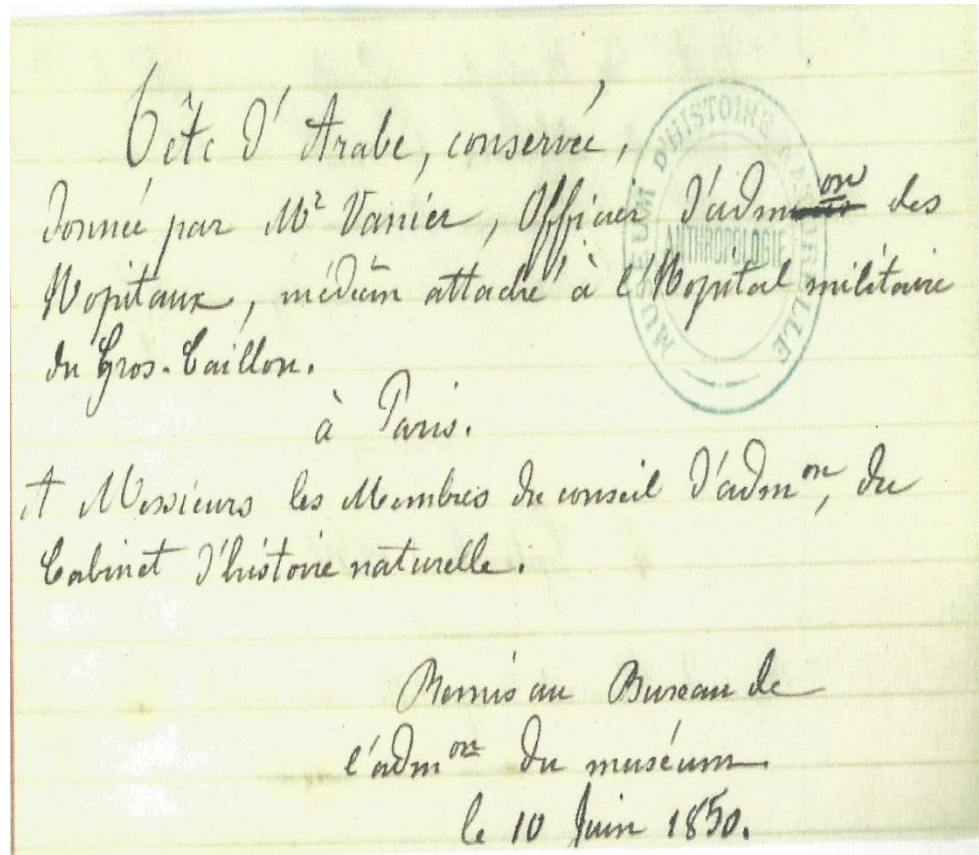 Tête d'Arabe, conservée,
donnée par Mr Vanier, Officier d'admon des
Hopitaux, médecin attaché à l'Hopital militaire
du Gros-Caillou.
à Paris.
A Messieurs les Membres du conseil d'admon, du
Cabinet d'histoire naturelle.
Remis au Bureau de
l'admon du muséum
le 10 Juin 1850.
MUSEUM D'HISTOIRE NATURELLE
ANTHROPOLOGIE